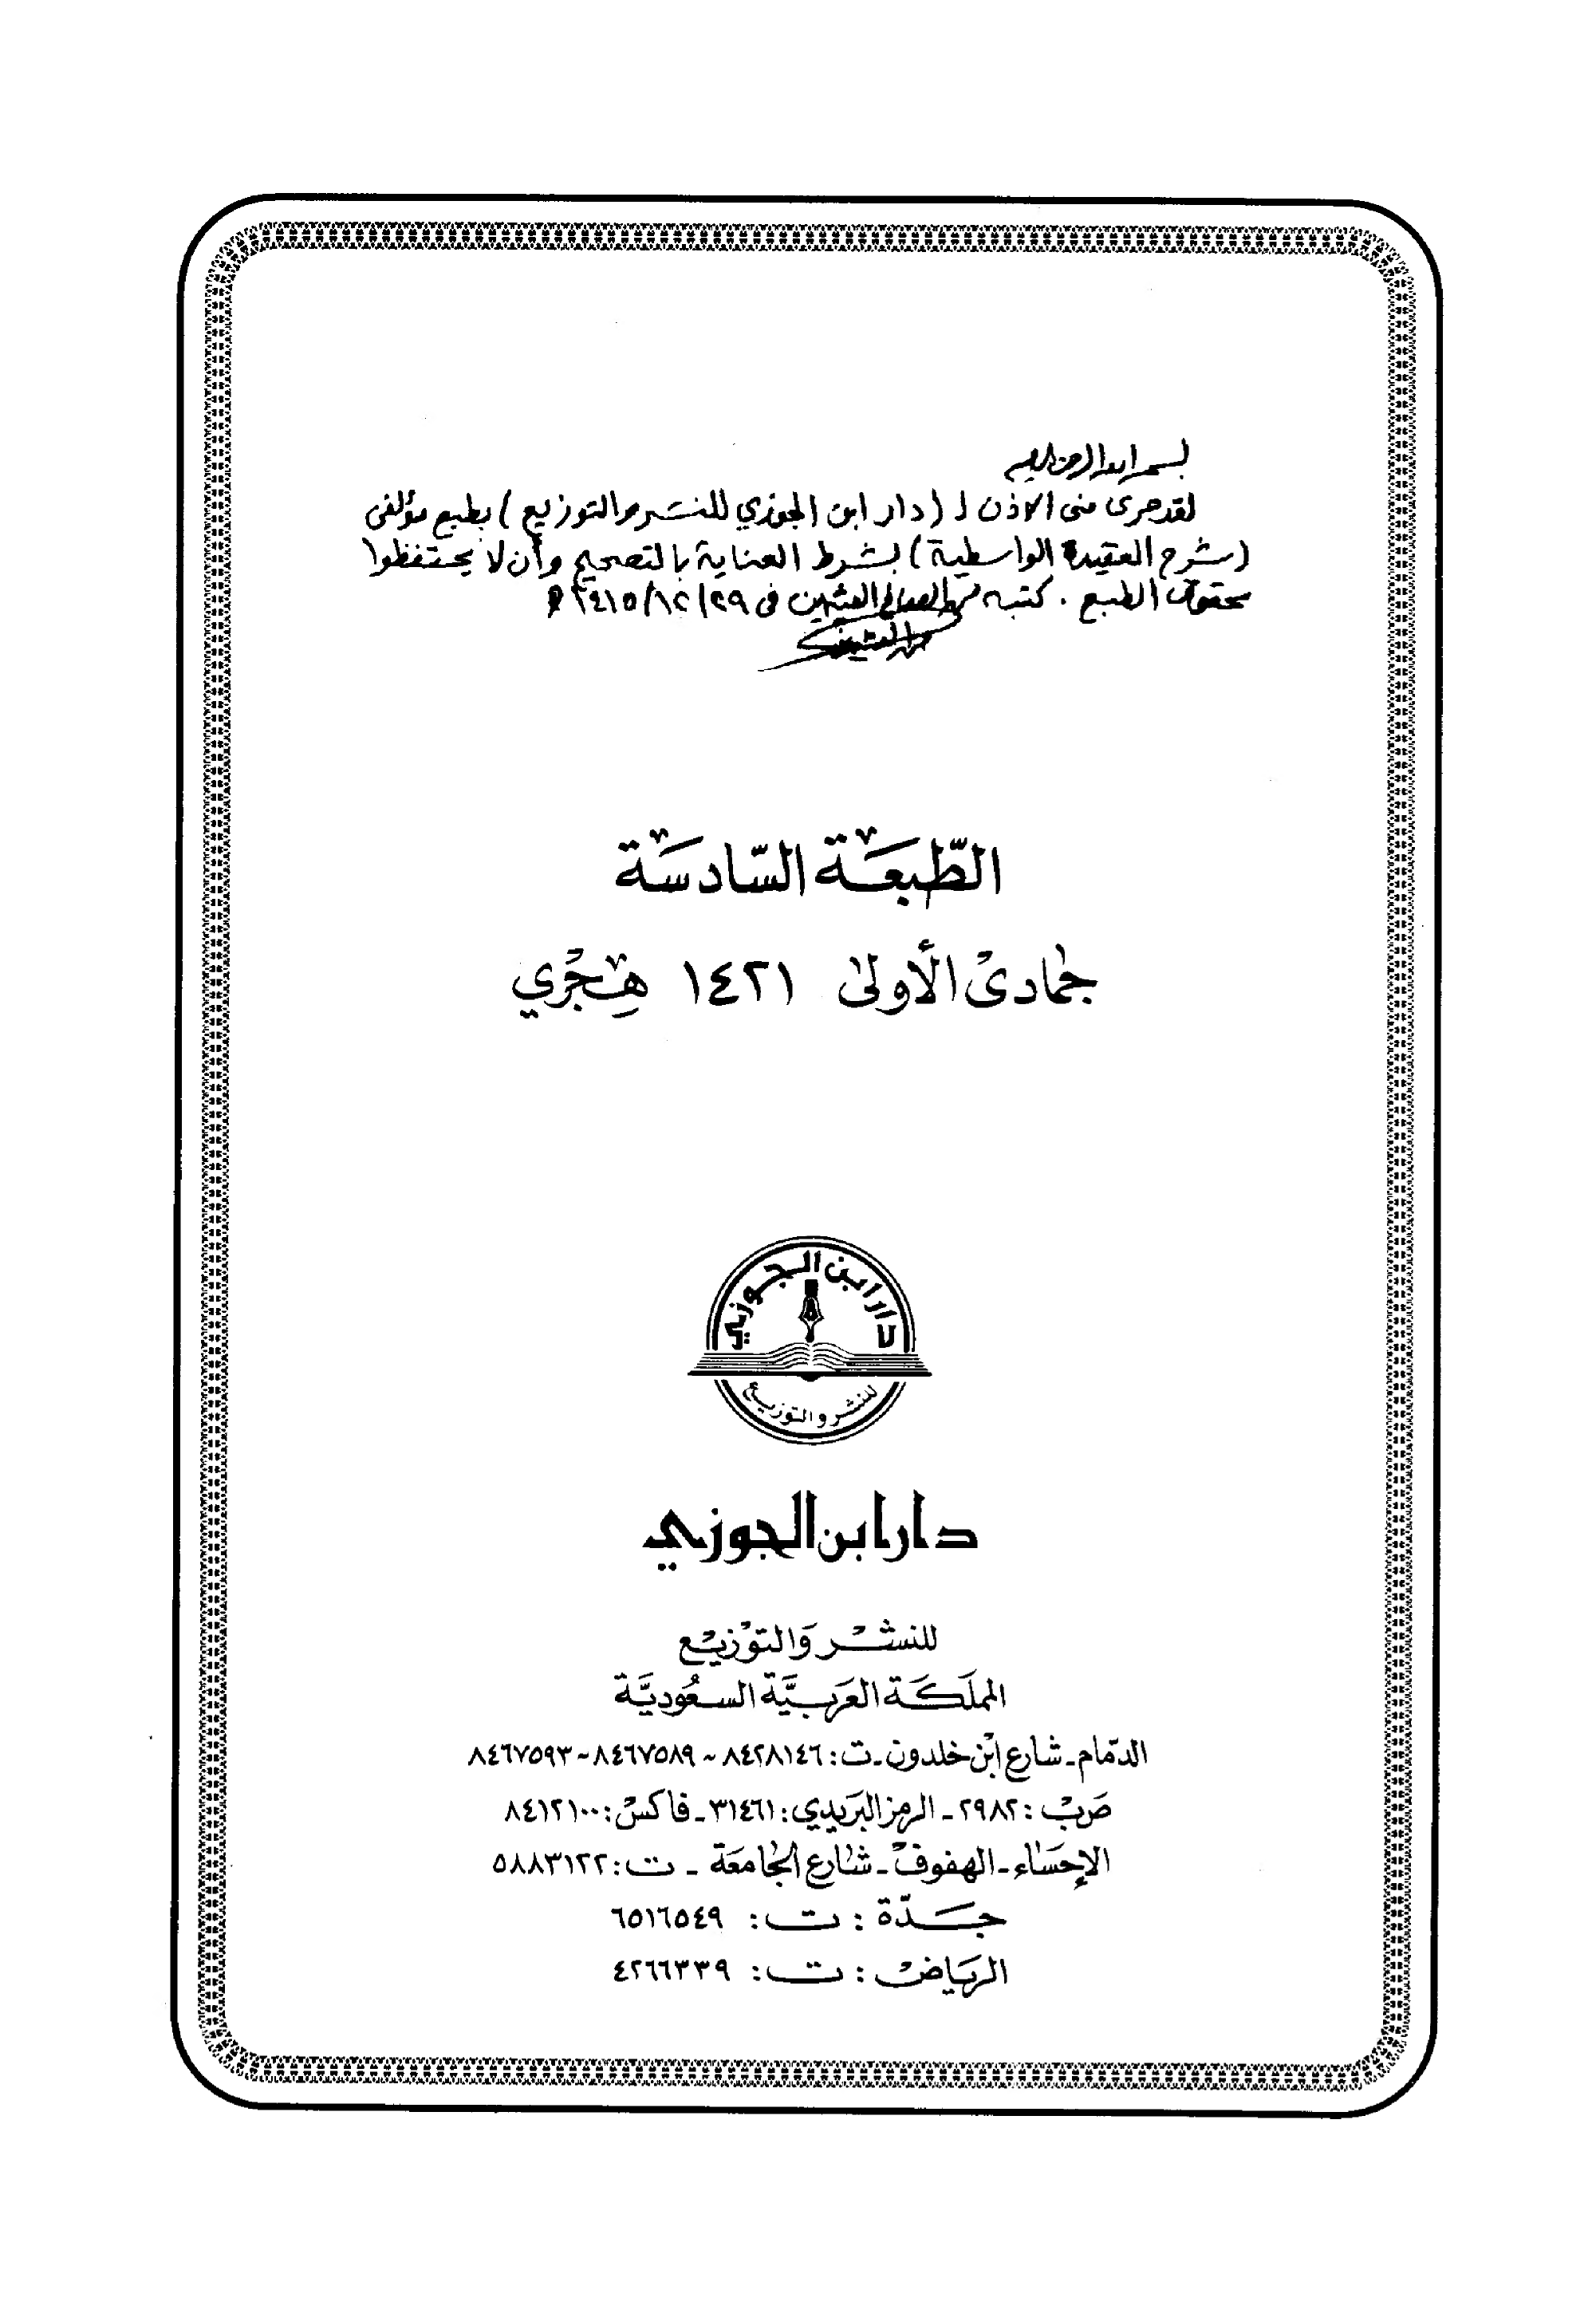 بسم الله الرحمن الرحيم
لقد جرى مني الاذن لـ (دار ابن الجوزي للنشر والتوزيع) بطبع مؤلفي
(شرح العقيدة الواسطية) بشرط العناية بالتصحيح وأن لا يحتفظوا
بحقوق الطبع . كتبه محمد الصالح العثيمين في ٢٩/١٢/١٤١٥ هـ
الطّبعَة السّادسَة
جمادى الأولى ١٤٢١ هِجْري
دار ابن الجوزي
للنشر والتوزيع
دار ابن الجوزي
للنشر وَالتوزيع
المملَكَة العَربيَّة السعُوديَّة
الدمّام - شارع ابْن خلدون - ت: ٨٤٢٨١٤٦ ~ ٨٤٦٧٥٨٩ ~ ٨٤٦٧٥٩٣
صَ ب: ٢٩٨٢ - الرمز البَريْدي: ٣١٤٦١ - فاكسْ: ٨٤١٢١٠٠
الإحسَاء - الهفوفْ - شارع الجَامعَة - ت: ٥٨٨٣١٢٢
جَدّة : ت: ٦٥١٦٥٤٩
الريَاضْ : ت: ٤٢٦٦٣٣٩